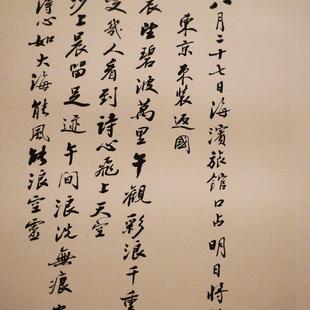 八月二十七日海濱旅館口占明日將
東京束裝返國
晨碧波萬里午觀彩浪千重
幾人看到詩心飛上天空
沙上晨留足迹午間浪洗無痕
詩心如大海能風能浪空靈